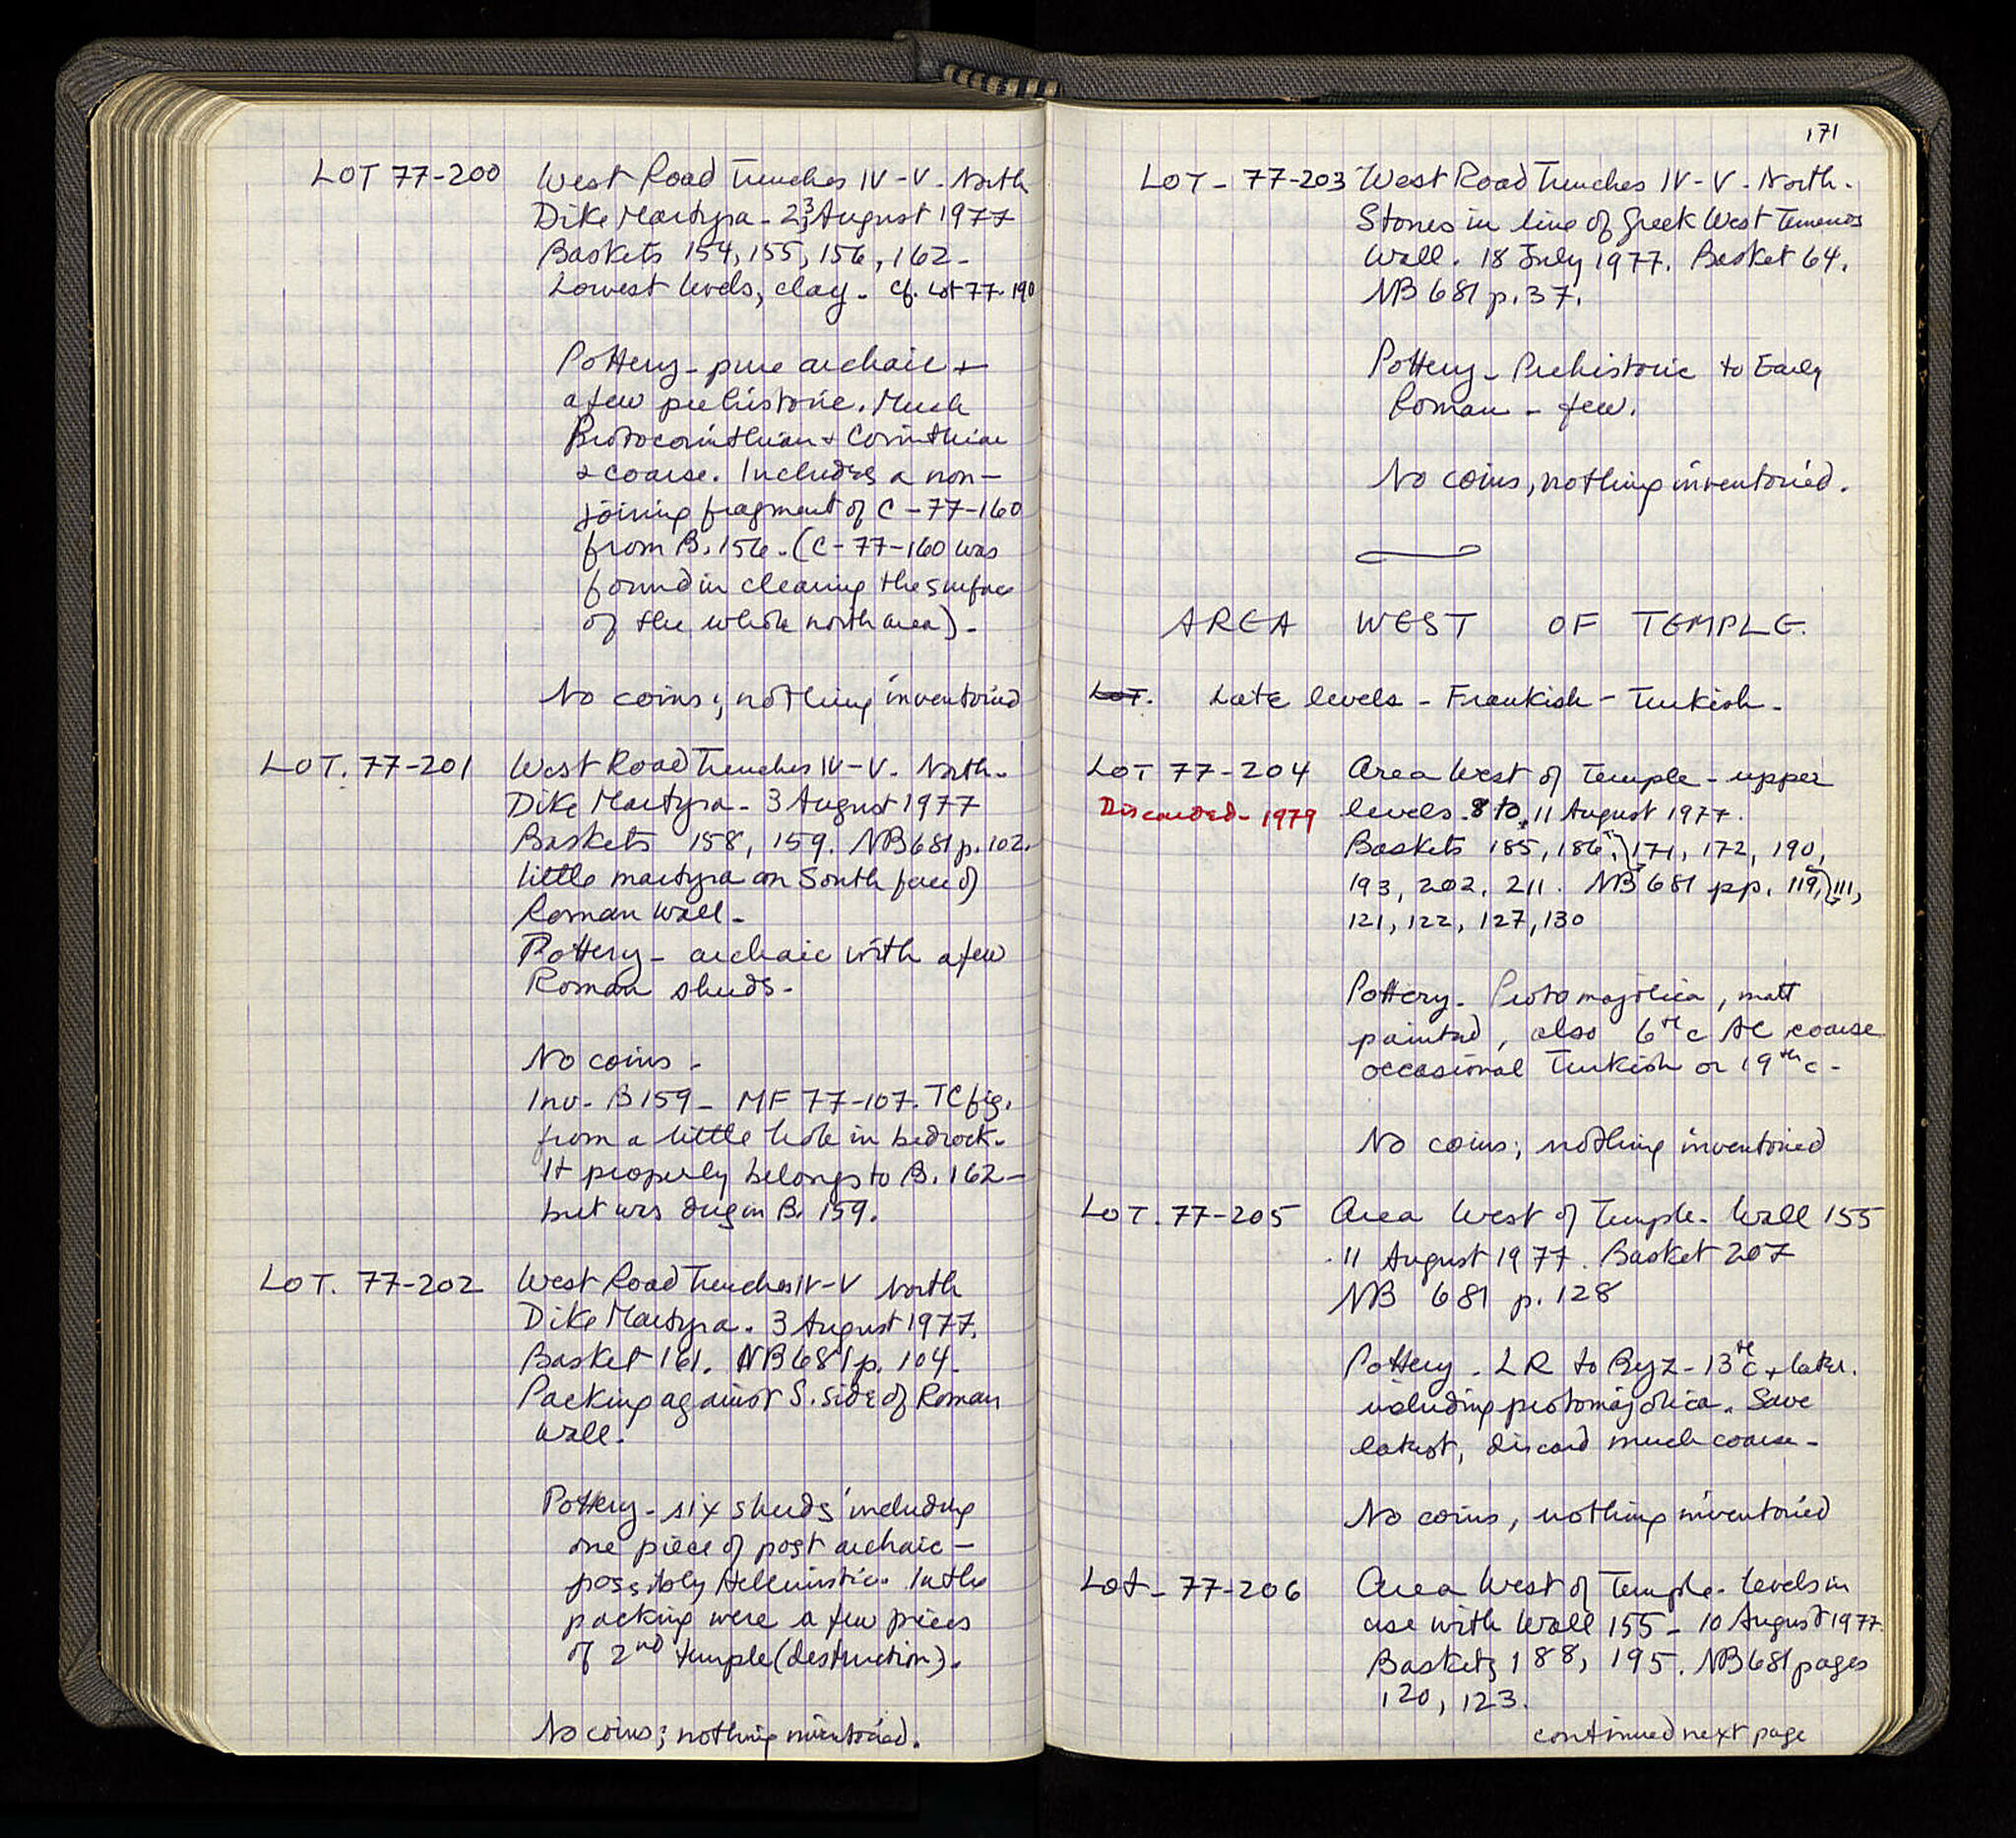 LOT 77-200 West Road Trenches IV-V. North
Dike Martyra - 2, 3 August 1977
Baskets 154, 155, 156, 162 -
Lowest levels, clay. Cf. Lot 77-190
Pottery - pure archaic +
a few prehistoric. Much
Protocorinthian + Corinthian
& coarse. Includes a non-
joining fragment of C-77-160
from B. 156. (C-77-160 was
found in cleaning the surface
of the whole north area).
No coins; nothing inventoried
LOT. 77-201 West Road Trenches IV-V. North.
Dike Martyra - 3 August 1977
Baskets 158, 159. NB 681 p. 102.
little martyra on South face of
Roman Wall -
Pottery - archaic with a few
Roman sherds -
No coins -
Inv. B159 - MF 77-107. TC fig.
from a little hole in bedrock.
It properly belongs to B. 162 -
but was dug in B. 159.
LOT. 77-202 West Road Trenches IV-V North
Dike Martyra. 3 August 1977.
Basket 161. NB 681 p. 104.
Packing against S. side of Roman
Wall.
Pottery - six sherds including
one piece of post archaic -
possibly Hellenistic. In the
packing were a few pieces
of 2nd temple (destruction).
No coins; nothing inventoried.
171
LOT - 77-203 West Road Trenches IV-V. North.
Stones in line of Greek West Temenos
Wall. 18 July 1977. Basket 64.
NB 681 p. 37.
Pottery - Prehistoric to Early
Roman - few.
No coins, nothing inventoried.
AREA WEST OF TEMPLE.
Lot. Late levels - Frankish - Turkish.
LOT 77-204 Area West of Temple - upper
Discarded - 1979 levels. 8 to 11 August 1977.
Baskets 185, 186, 171, 172, 190,
193, 202, 211. NB 681 pp. 119, 111,
121, 122, 127, 130
Pottery - Protomajolica, matt
painted, also 6th c AC coarse
occasional Turkish or 19th c -
No coins; nothing inventoried
LOT. 77-205 Area West of Temple. Wall 155
11 August 1977. Basket 207
NB 681 p. 128
Pottery - LR to Byz - 13th c + later.
including protomajolica. Save
latest, discard much coarse -
No coins, nothing inventoried
Lot - 77-206 Area West of Temple. Levels in
use with Wall 155 - 10 August 1977
Baskets 188, 195. NB 681 pages
120, 123.
continued next page